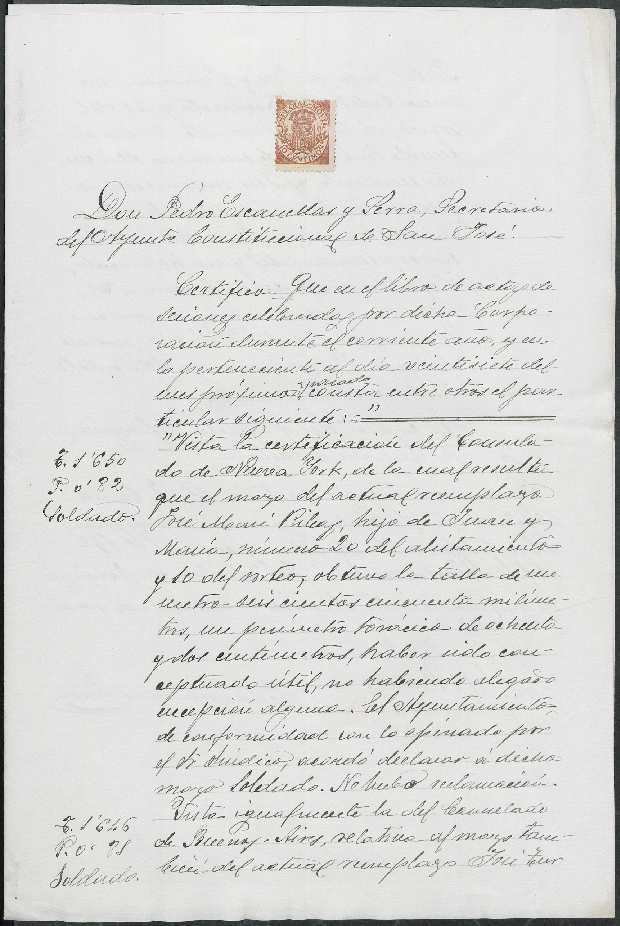 Don Pedro Escanellas y Serra, Secretario
del Ayunto Constitucional de San José.
Certifico: Que en el libro de actas de
sesiones celebradas por dicha Corpo-
ración durante el corriente año, y en
la perteneciente al día veintisiete del
mes próximo pasado consta entre otros el par-
ticular siguiente: = "
"Vista la certificación del Consula-
do de Nueva York, de la cual resulta
que el mozo del actual reemplazo
José Marí Ribas, hijo de Juan y
María, número 20 del alistamiento
y 10 del sorteo, obtuvo la talla de un
metro seis cientos cincuenta milíme-
tros, un perímetro torácico de ochenta
y dos centímetros, haber sido con-
ceptuado útil, no habiendo alegado
excepción alguna. El Ayuntamiento,
de conformidad con lo opinado por
el Sr Síndico, acordó declarar a dicho
mozo Soldado. No hubo reclamación.
Vista igualmente la del Consulado
de Buenos-Aires, relativa al mozo tam-
bién del actual reemplazo José Tur
T. 1'650
P. 0'82
Soldado.
T. 1'646
P. 0'85
Soldado.